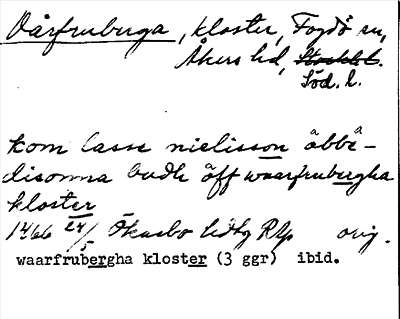 Vårfruberga, kloster, Fogdö sn,
Åkers hd, Stockh. l.
Söd. l.
kom lasse nielisson äbbå-
disonna budh äff waarfrubergha
kloster
1466 24/5 Öknebo hdtg RAp orig.
waarfrubergha kloster (3 ggr) ibid.